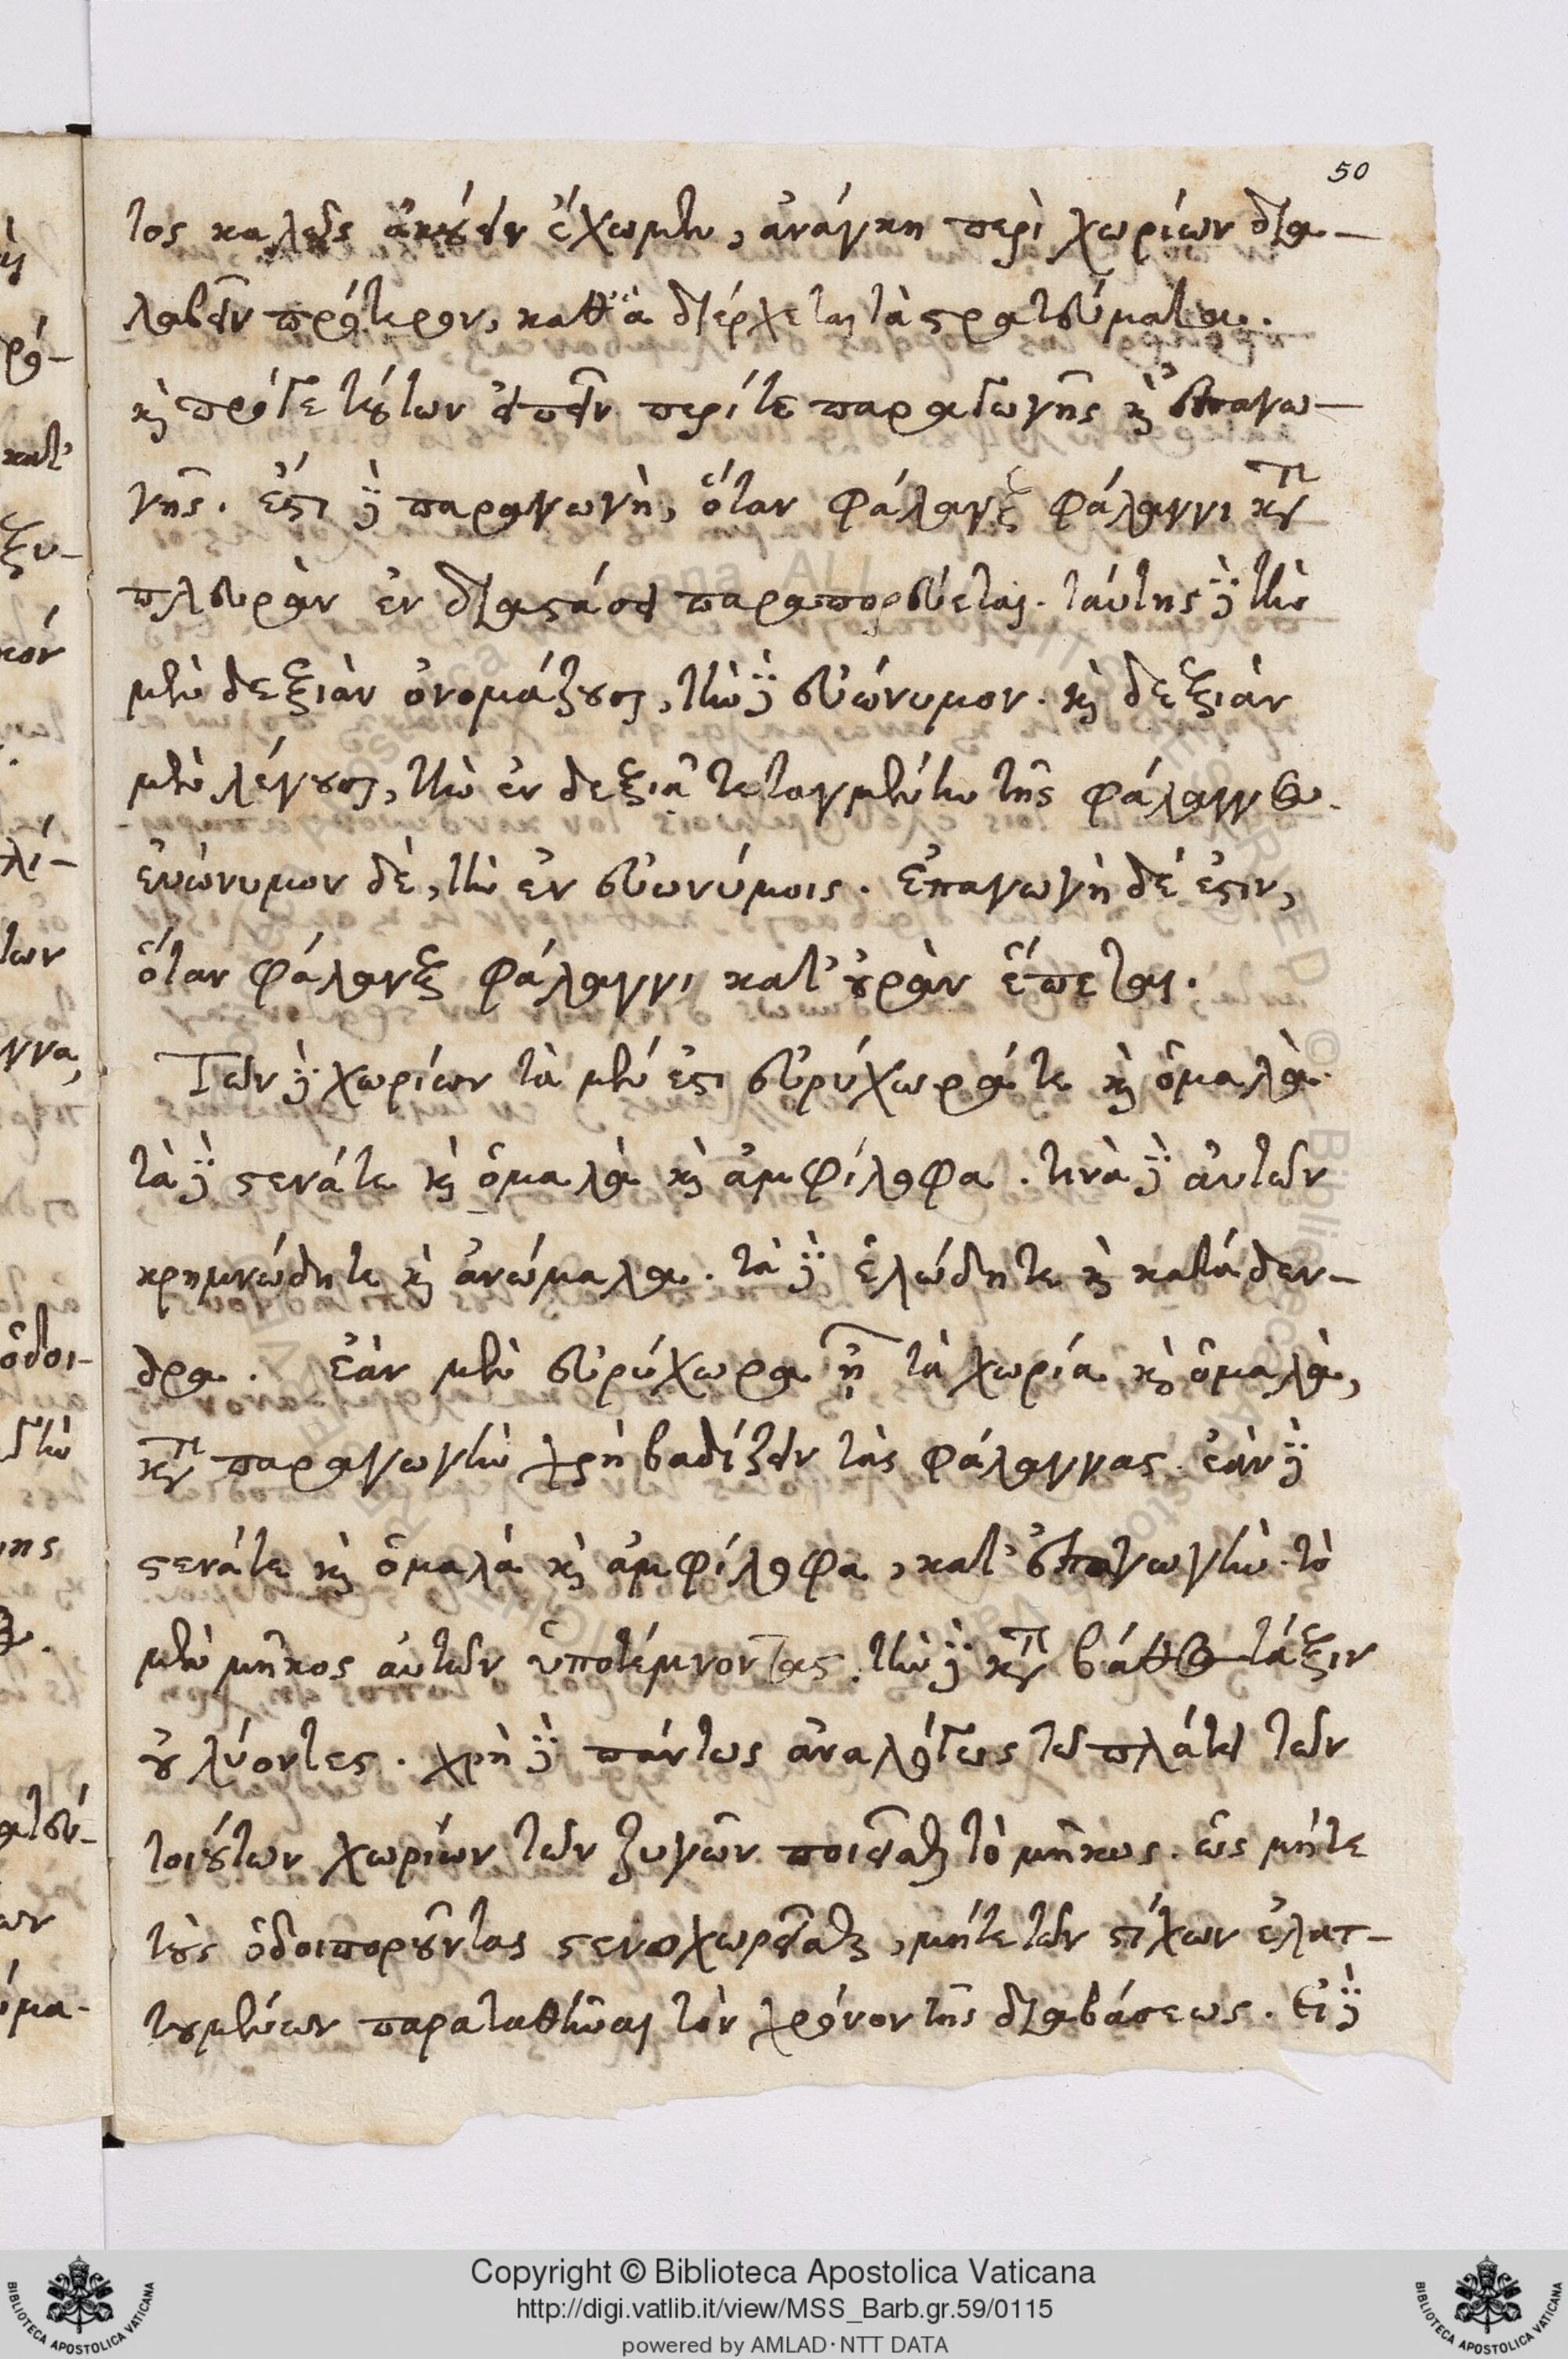 50
τος καλῶς ἀκούειν ἔχωμεν, ἀνάγκη περὶ χωρίων δια-
λαβεῖν πρότερον, καθ' ἃ διέρχεται τὰ στρατεύματα.
καὶ πρόγε τούτων εἰπεῖν περί τε παραγωγῆς καὶ ἐπαγω-
γῆς. ἔστι δὲ παραγωγὴ, ὅταν φάλαγξ φάλαγγι κατὰ
πλευρὰν ἐν διαστάσει παραπορεύεται. ταύτης δὲ τὴν
μὲν δεξιὰν ὀνομάζουσι, τὴν δὲ εὐώνυμον. καὶ δεξιὰν
μὲν λέγουσι, τὴν ἐν δεξιᾷ τεταγμένην τῆς φάλαγγος.
εὐώνυμον δὲ, τὴν ἐν εὐωνύμοις. ἐπαγωγὴ δέ ἐστιν,
ὅταν φάλαγξ φάλαγγι κατ' οὐρὰν ἕπεται.
Τῶν δὲ χωρίων τὰ μέν ἐστι εὐρύχωρά τε καὶ ὁμαλὰ.
τὰ δὲ στενά τε καὶ ὁμαλὰ καὶ ἀμφίλοφα. τινὰ δὲ αὐτῶν
κρημνώδη τε καὶ ἀνώμαλα. τὰ δὲ ἑλώδη τε καὶ κατάδεν-
δρα. ἐὰν μὲν εὐρύχωρα ᾖ τὰ χωρία καὶ ὁμαλὰ,
κατὰ παραγωγὴν χρὴ βαδίζειν τὰς φάλαγγας. ἐὰν δὲ
στενά τε καὶ ὁμαλὰ καὶ ἀμφίλοφα, κατ' ἐπαγωγὴν. τὸ
μὲν μῆκος αὐτῶν ὑποτέμνοντας. τὴν δὲ κατὰ βάθος τάξιν
οὐ λύοντες. χρὴ δὲ πάντως ἀναλόγως τῷ πλάτει τῶν
τοιούτων χωρίων τῶν ζυγῶν ποιεῖσθαι τὸ μῆκος. ὡς μήτε
τοὺς ὁδοιποροῦντας στενοχωρεῖσθαι, μήτε τῶν στίχων ἐλατ-
τουμένων παραταθῆναι τὸν χρόνον τῆς διαβάσεως. Εἰ δὲ
Copyright © Biblioteca Apostolica Vaticana
http://digi.vatlib.it/view/MSS_Barb.gr.59/0115
powered by AMLAD·NTT DATA